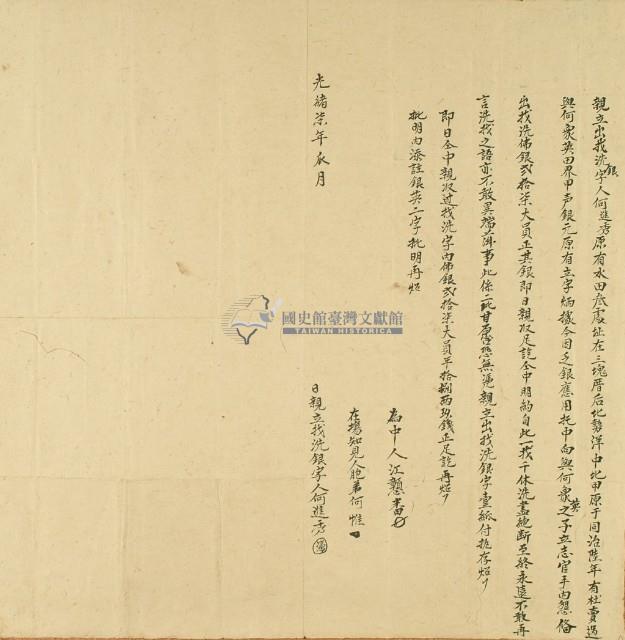 親立出找洗銀字人何進秀原有水田貳處址在三塊厝后北勢洋中北甲原于同治陸年有杜賣過
與何眾英田界甲声銀元原有立字炳據今因乏銀應用托中向與何眾英之子立志官手內懇俻
出找洗佛銀弍拾柒大員正其銀即日親收足訖仝中明約自此一找千休洗盡絕斷至終永遠不敢再
言洗找之語亦不敢異端滋事此係二比甘愿恐無憑親立出找洗銀字壹紙付执存炤
即日仝中親收过找洗字內佛銀弍拾柒大員平拾捌両玖錢正足訖再炤
批明內添註銀英二字批明再炤
為中人江戇番
在塲知見人胞弟何惟
光緒柒年 月 日親立找洗銀字人何進秀
國史館臺灣文獻館
TAIWAN HISTORICA